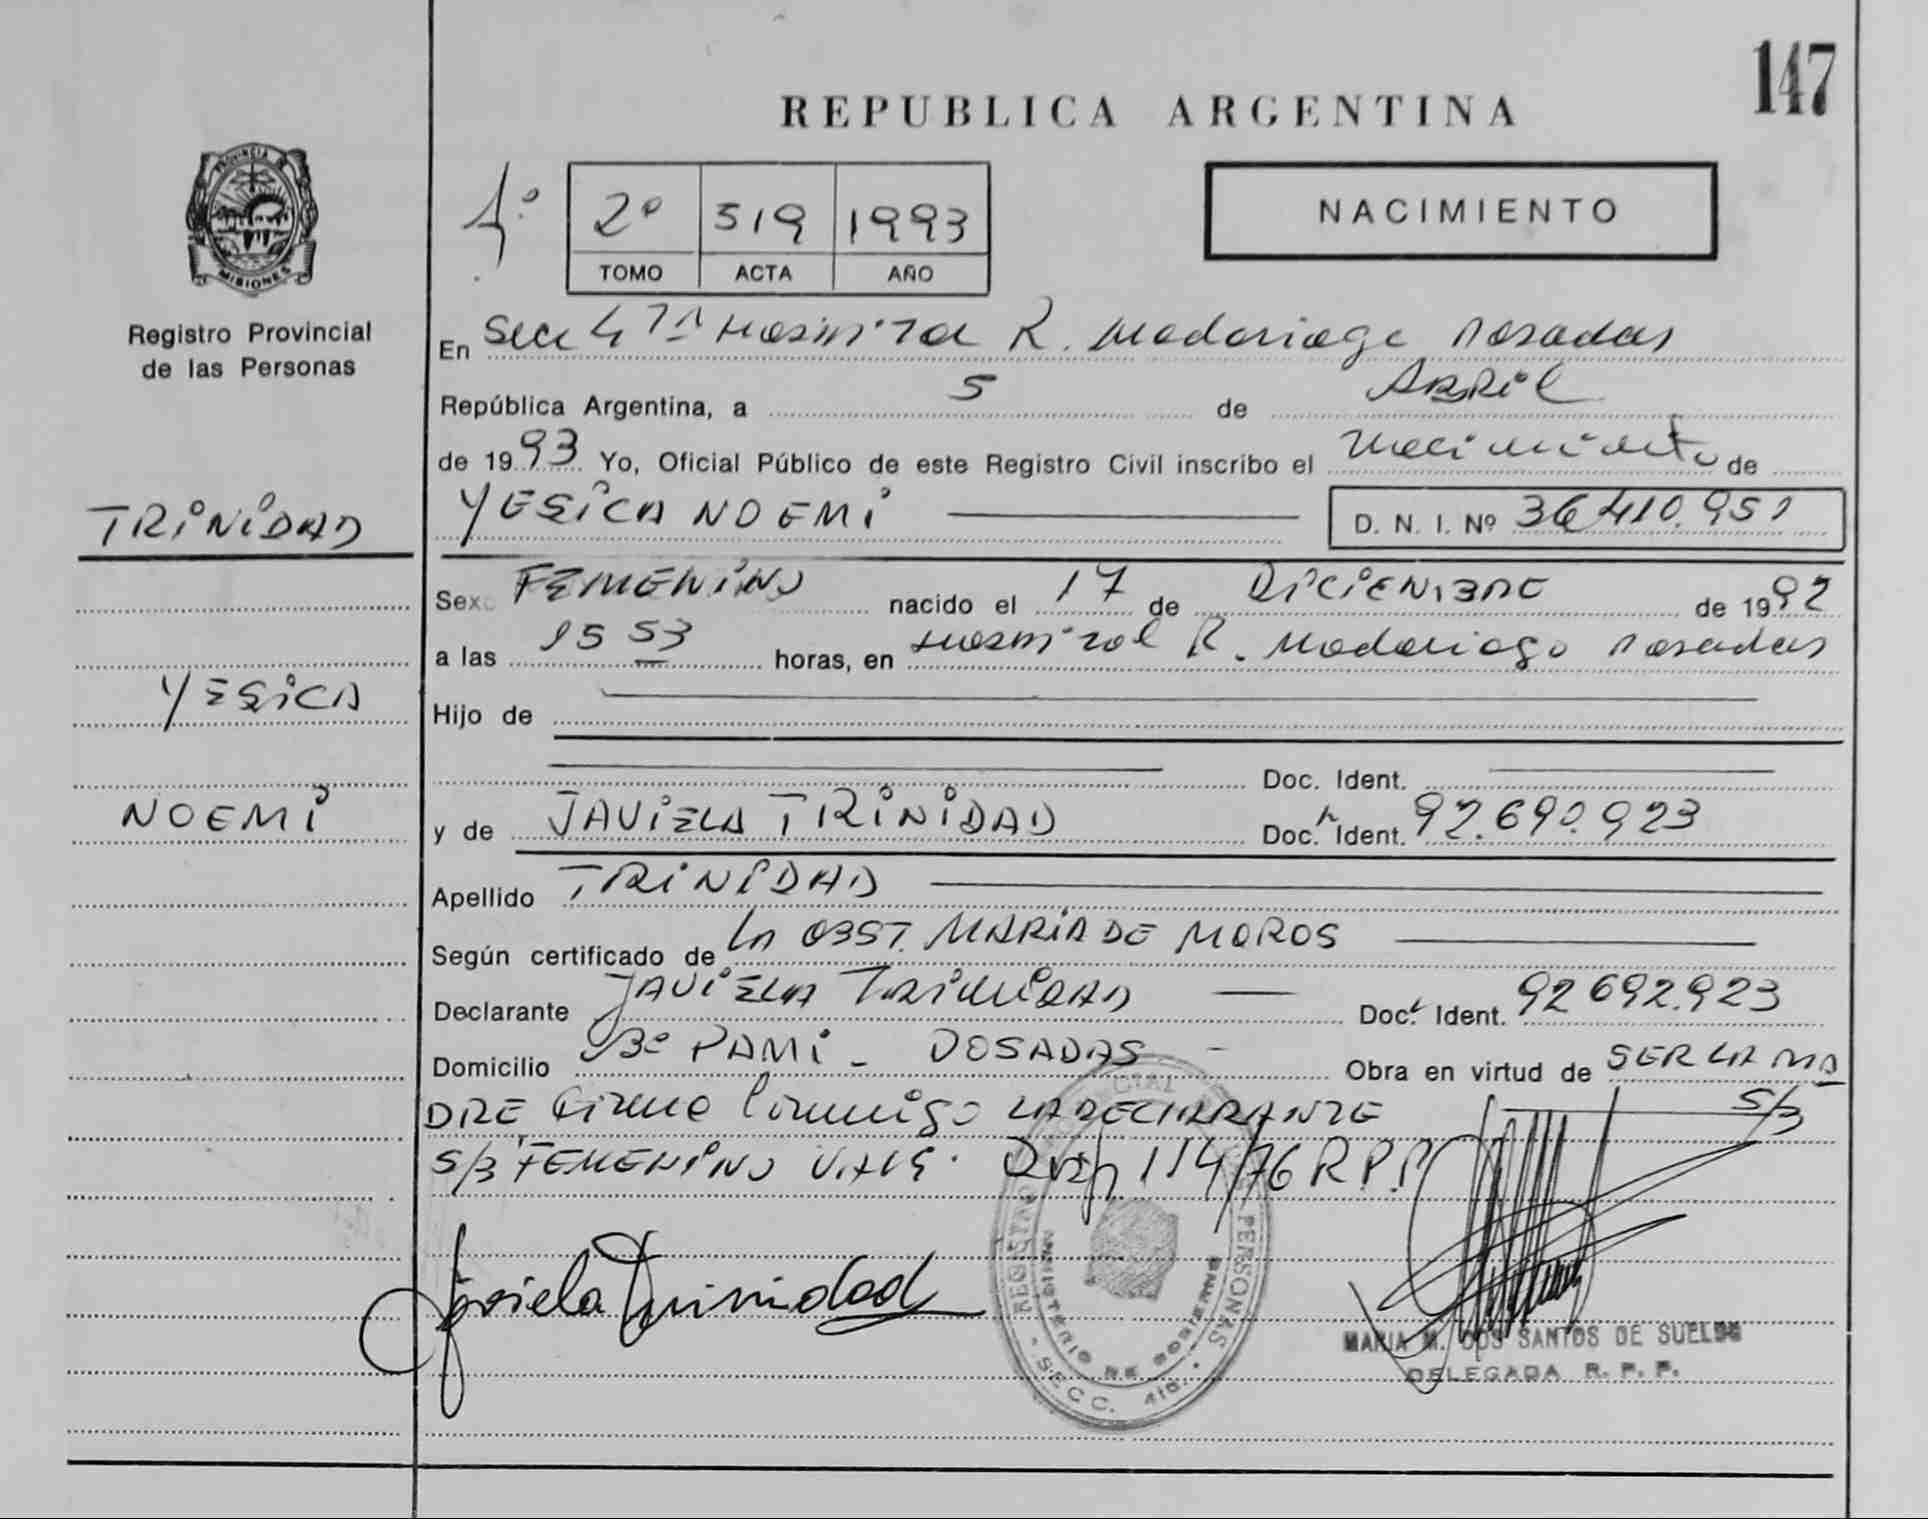 147
REPUBLICA ARGENTINA
PROVINCIA DE
MISIONES
Registro Provincial
de las Personas
1º
2º 519 1993
TOMO ACTA AÑO
NACIMIENTO
En Secc 4ta Hospital R. Madariaga Posadas
República Argentina, a 5 de ABRIL
de 1993 Yo, Oficial Público de este Registro Civil inscribo el nacimiento de
TRINIDAD
YESICA NOEMI
D. N. I. Nº 36 410.951
Sexo FEMENINO nacido el 17 de DICIEMBRE de 1992
a las 15 53 horas, en Hospital R. Madariaga Posadas
YESICA
Hijo de
Doc. Ident.
NOEMI
y de JAVIELA TRINIDAD Doc. Ident. 92.690.923
Apellido TRINIDAD
Según certificado de la OBST. MARIA DE MOROS
Declarante JAVIELA TRINIDAD Doc. Ident. 92 692.923
Domicilio Bº PAMI - POSADAS - Obra en virtud de SER LA MA
DRE firma conmigo LA DECLARANTE S/B
S/B FEMENINO VALE. Disp 114/76 R.P.P.
Javiela Trinidad
REGISTRO PROVINCIAL DE LAS PERSONAS
MINISTERIO DE GOBIERNO
- SECC. 4ta. -
MARIA M. DOS SANTOS DE SUELDO
DELEGADA R. P. P.